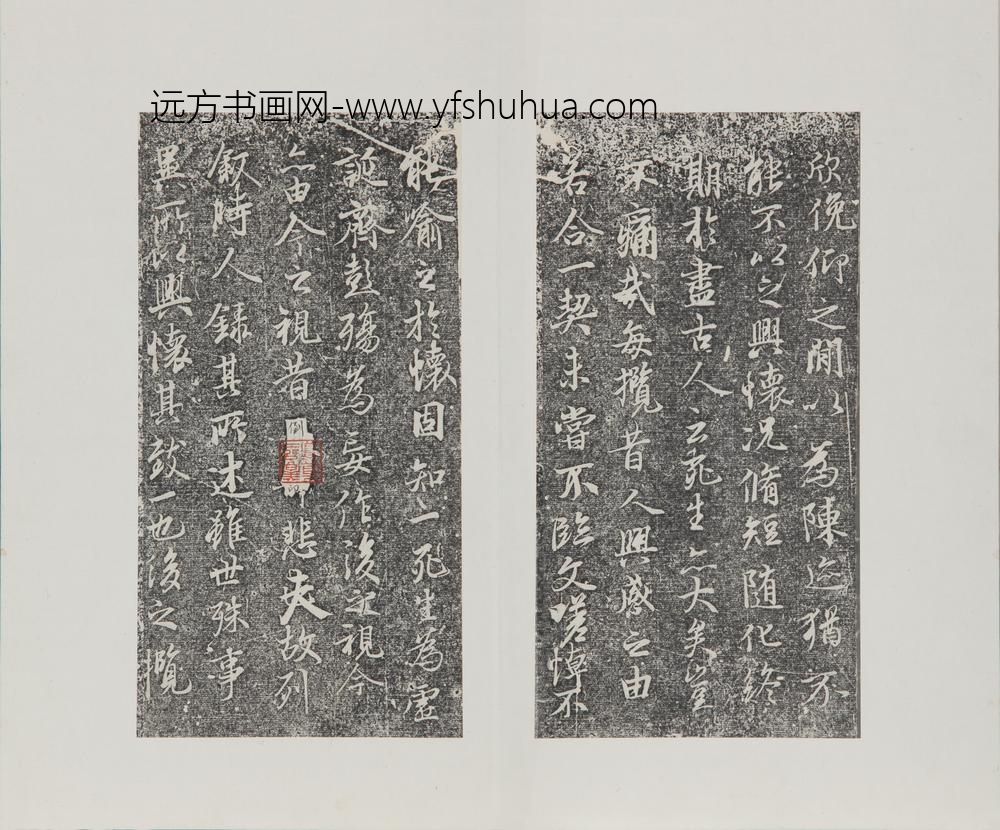 远方书画网-www.yfshuhua.com
欣俛仰之間以為陳迹猶不
能不以之興懷況脩短隨化終
期於盡古人云死生亦大矣豈
不痛哉每攬昔人興感之由
若合一契未嘗不臨文嗟悼不
能喻之於懷固知一死生為虛
誕齊彭殤為妄作後之視今
亦由今之視昔悲夫故列
叙時人錄其所述雖世殊事
異所以興懷其致一也後之攬